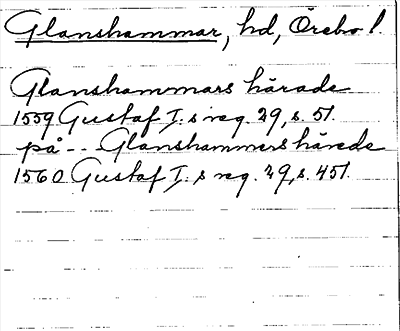 Glanshammar, hd, Örebro l.
Glanshammars härade
1559 Gustaf I:s reg. 29, s. 51.
på - - Glanshammers härede
1560 Gustaf I:s reg. 29, s. 451.